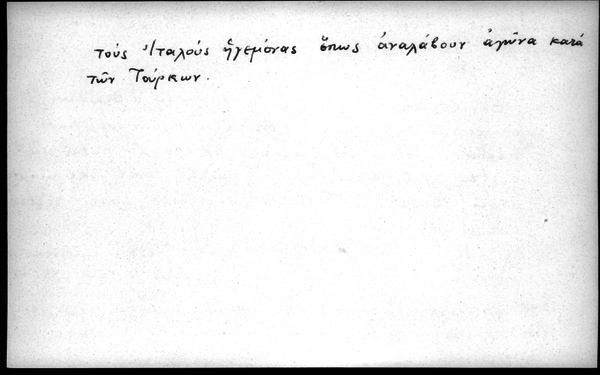 τοὺς Ἰταλοὺς ἡγεμόνας ὅπως ἀναλάβουν ἀγῶνα κατὰ
τῶν Τούρκων.